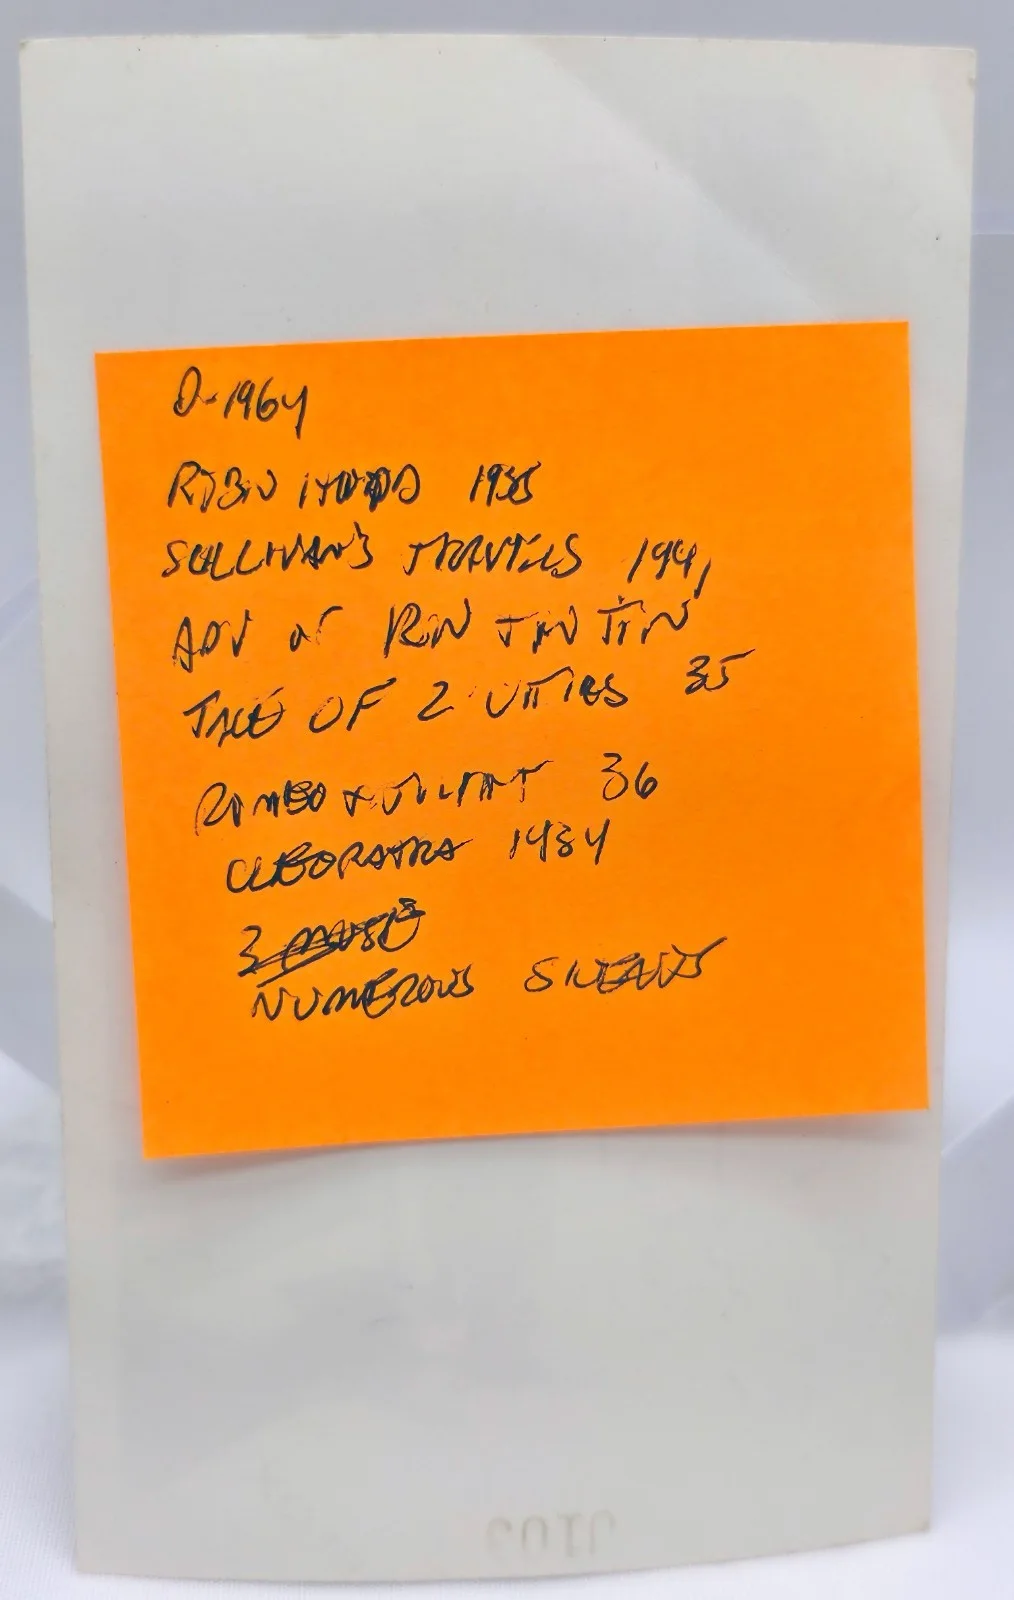 D-1964
ROBIN HOOD 1938
SULLIVAN'S TRAVELS 1941
ADV OF RIN TIN TIN
TALE OF 2 CITIES 35
ROMEO & JULIET 36
CLEOPATRA 1934
3 MUSK
NUMEROUS